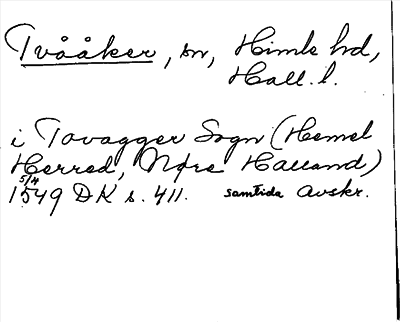 Tvååker, sn, Himle hd,
Hall. l.
i Tovagger Sogn (Hemel
Herred, Nørre Halland)
5/4
1549 DK s. 411. samtida Avskr.